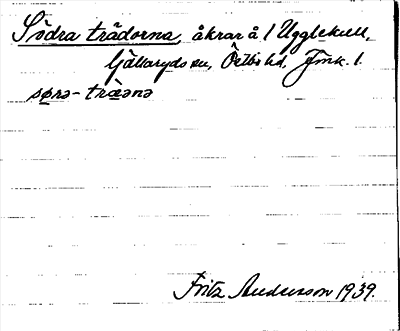 Södra trädorna, åkrar å 1 Ugglekull,
Gällaryds sn, Östbo hd, Jmk. l.
sørə- træənə
Fritz Anderson 1939.